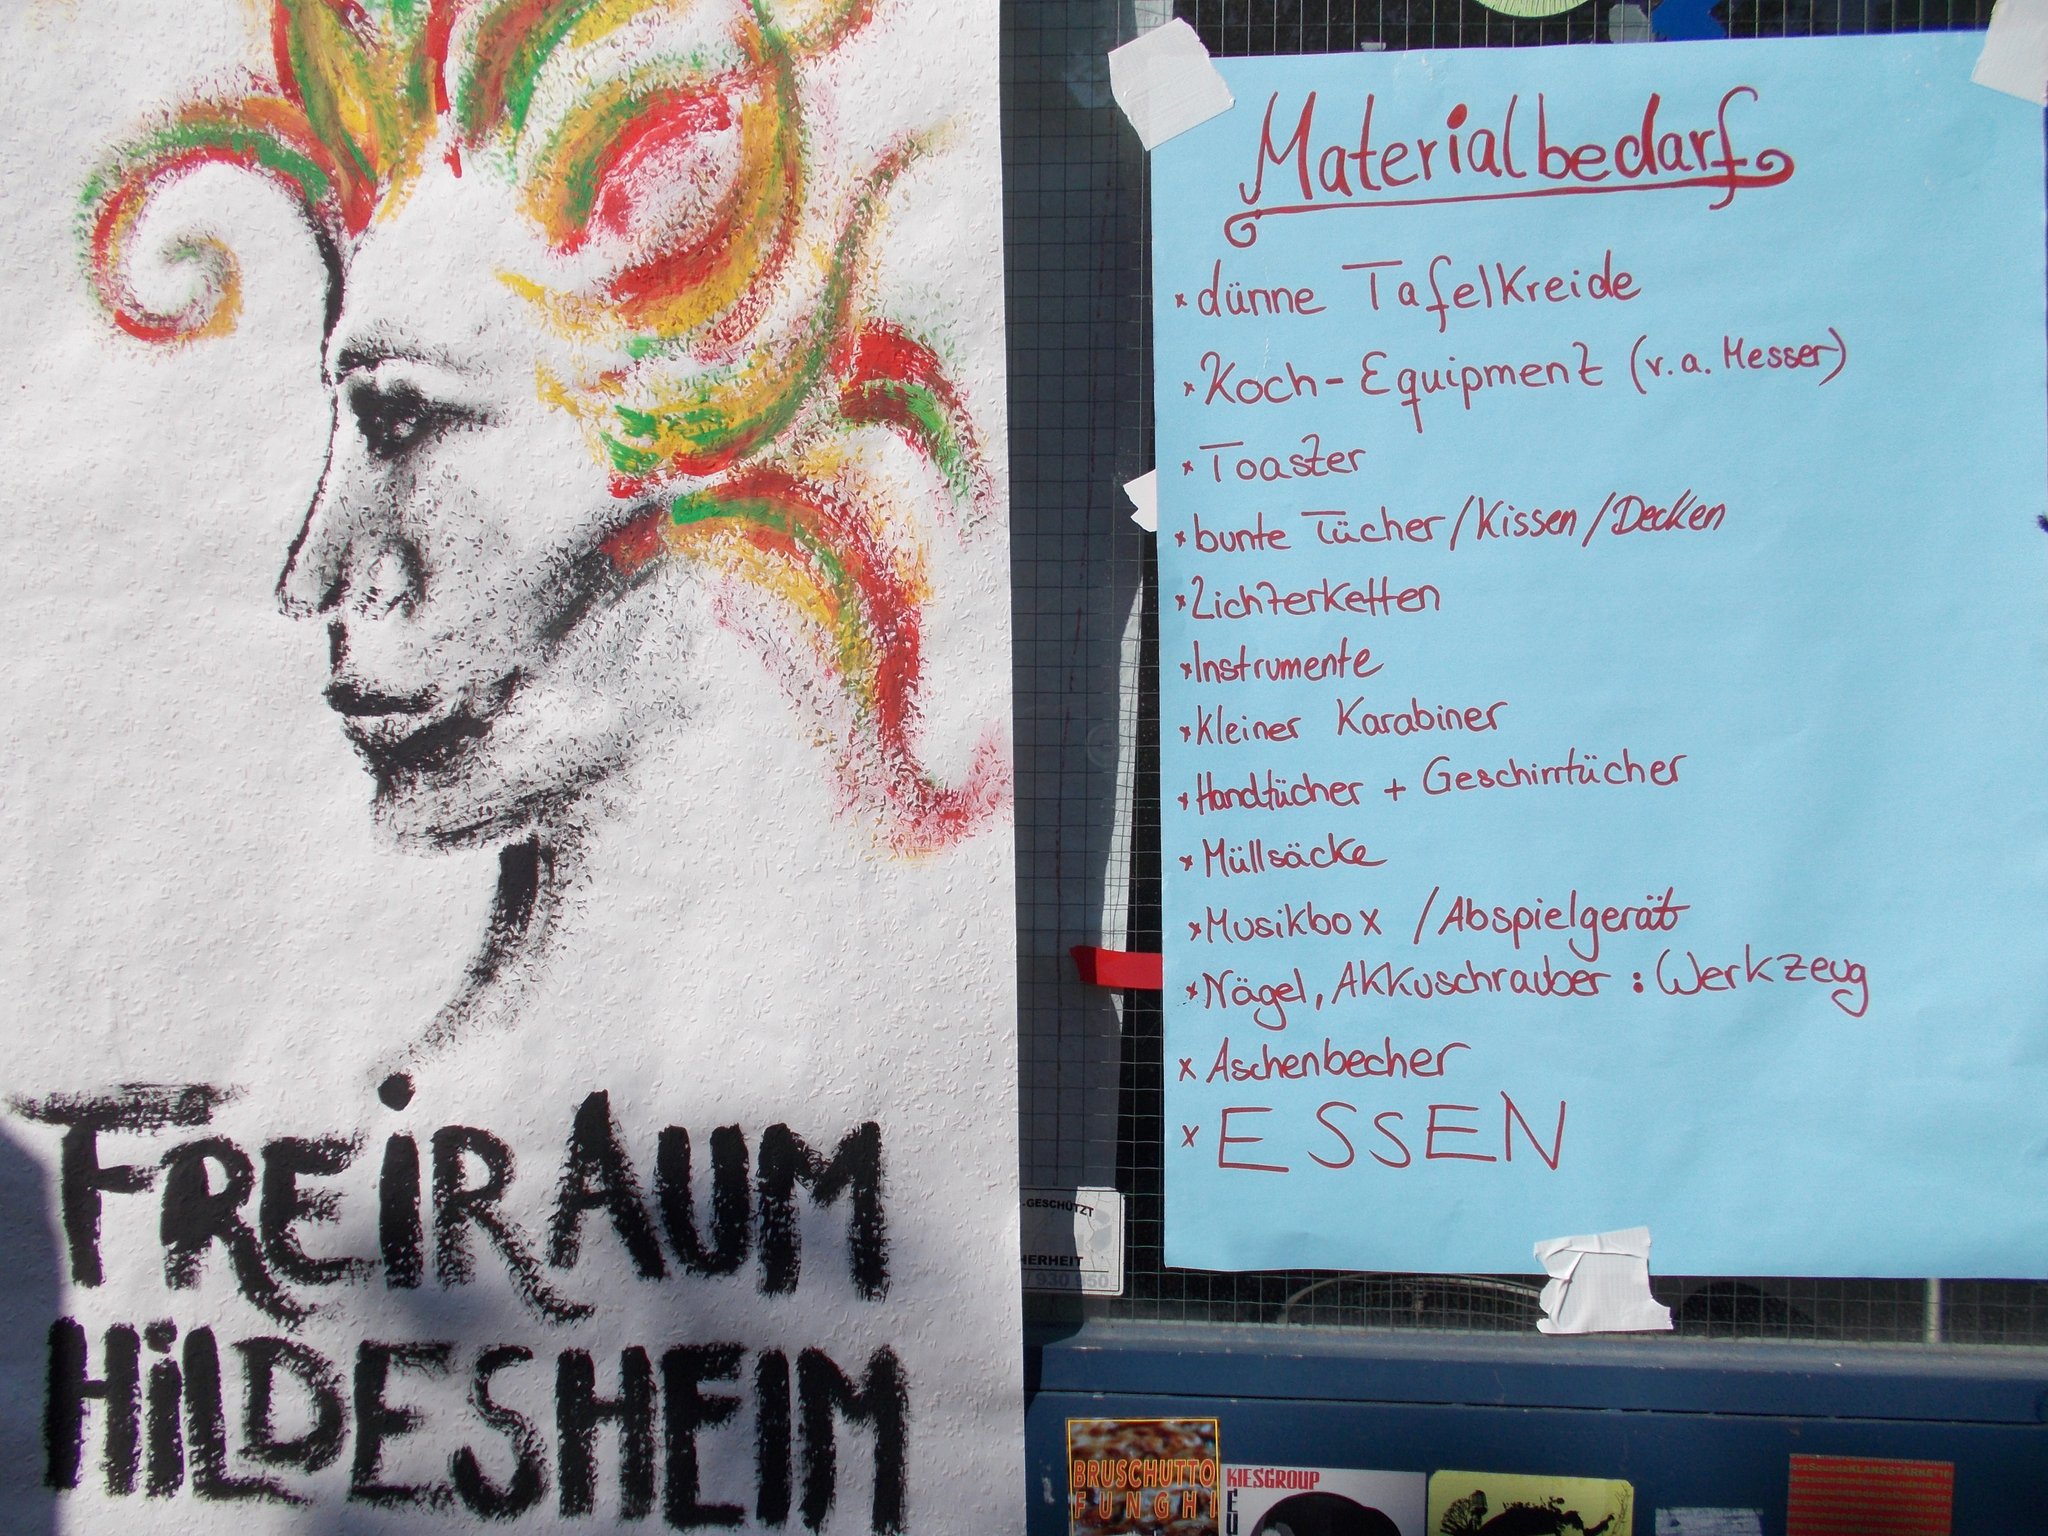 FREiRAUM
HiLDESHEIM
Materialbedarf
x dünne Tafelkreide
x Koch-Equipment (v.a. Messer)
x Toaster
x bunte Tücher/Kissen/Decken
x Lichterketten
x Instrumente
x kleiner Karabiner
x Handtücher + Geschirrtücher
x Müllsäcke
x Musikbox /Abspielgerät
x Nägel, Akkuschrauber : Werkzeug
x Aschenbecher
x ESSEN
.GESCHÜTZT
HERHEIT
/ 930 950
BRUSCHUTTO
FUNGHI
KIESGROUP